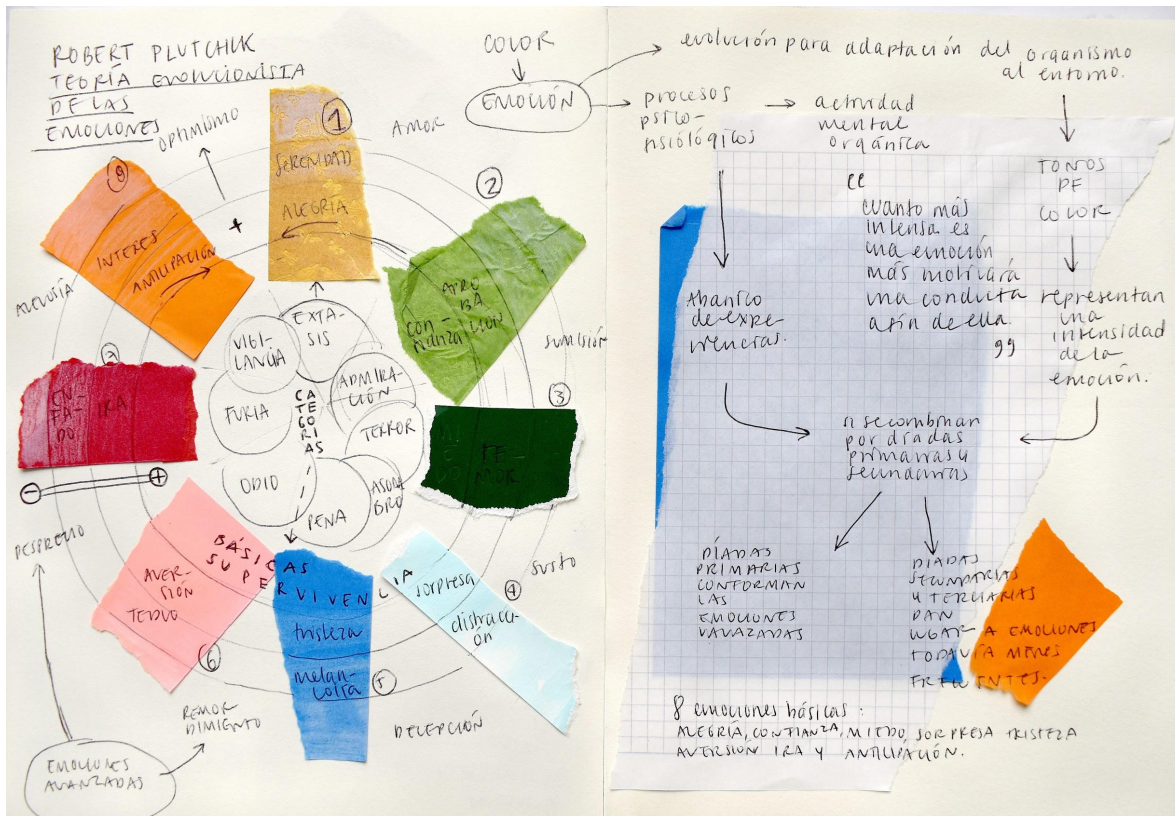 ROBERT PLUTCHIK
TEORÍA EVOLUCIONISTA
DE LAS
EMOCIONES
OPTIMISMO
1
SERENIDAD
ALEGRÍA
AMOR
2
APRO
BA
CIÓN
confianza
SUMISIÓN
3
TE-
MOR
SUSTO
4
sorpresa
distracc-
ión
DECEPCIÓN
5
tristeza
melan-
colía
REMOR
DIMIENTO
6
AVER-
SIÓN
TEDIO
DESPRECIO
EN
FA-
DO
IRA
ALEVOSÍA
INTERÉS
ANTICIPACIÓN
+
- +
EXTA-
SIS
VIGI-
LANCIA
ADMIRA-
CIÓN
FURIA
TERROR
ODIO
ASOM
BRO
PENA
CATEGORÍAS
BÁSICAS
SUPERVIVENCIA
EMOCIONES
AVANZADAS
COLOR
EMOCIÓN
evolución para adaptación del organismo
al entorno.
procesos
psico-
fisiológicos
actividad
mental
orgánica
TONOS
DE
COLOR
"
cuanto más
intensa es
una emoción
más motivará
una conducta
afín de ella.
"
Abanico
de expe-
riencias.
representan
una
intensidad
de la
emoción.
se combinan
por díadas
primarias y
secundarias
DÍADAS
PRIMARIAS
CONFORMAN
LAS
EMOCIONES
DÍADAS
SECUNDARIAS
Y TERCIARIAS
DAN
LUGAR A EMOCIONES
TODAVÍA MENOS
FRECUENTES.
8 emociones básicas:
ALEGRÍA, CONFIANZA, MIEDO, SORPRESA TRISTEZA
AVERSION IRA Y ANTICIPACIÓN.